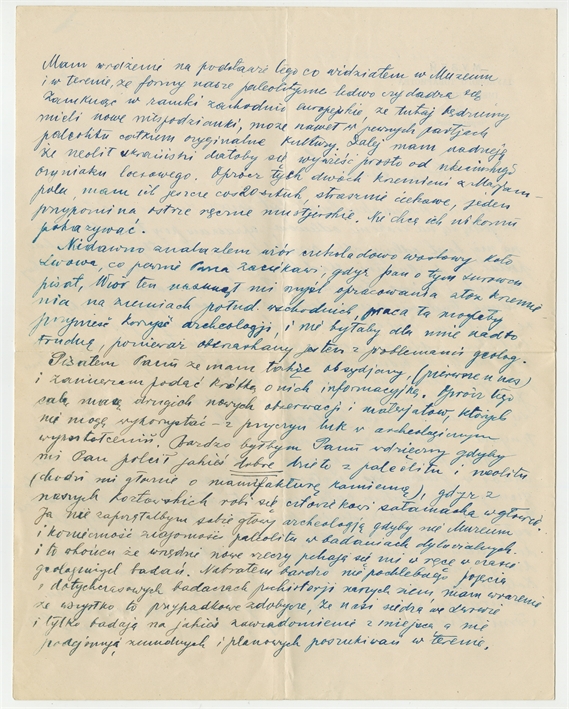 Mam wrażenie na podstawie tego co widziałem w Muzeum
i w terenie, że formy nasze paleolityczne ledwo czy dadzą się
zamknąć w ramki zachodnio europejskie, że tutaj będziemy
mieli nowe niespodzianki, może nawet w pewnych partjach
paleolitu całkiem oryginalne kultury. Dalej mam nadzieję
że neolit ukraiński dałoby się wywieść prosto od
oryniaku loessowego. Oprócz tych dwóch krzemieni z
pola, mam ich jeszcze coś 20 sztuk, strasznie ciekawe, jeden
przypomina ostrze ręczne mustjerskie. Nie chcę ich nikomu
pokazywać.
Niedawno znalazłem wiór czekoladowo woskowy koło
Lwowa, co pewnie Pana zaciekawi, gdyż pan o tym surowcu
pisał. Wiór ten nasunął mi myśl opracowania złóż krzemie-
nia na ziemiach połud. wschodnich, praca ta mogłaby
przynieść korzyść archeologji, i nie byłaby dla mnie nadto
trudną, ponieważ obeznany jestem z problemami geolog.
Pisałem Panu że mam także obsydjany, (pierwsze u nas)
i zamierzam podać krótką o nich informacyjkę. Oprócz tego
całą masę drugich nowych obserwacji i materjałów, których
nie mogę wykorzystać – z przyczyn luk w archeologicznym
wykształceniu. Bardzo byłbym Panu wdzięczny gdyby
mi Pan polecił jakieś dobre dzieło z paleolitu i neolitu
(chodzi mi głównie o manufakturę kamienną), gdyż z
naszych kozłowskich robi się człowiekowi sałamacha w głowie.
Ja nie zaprzątałbym sobie głowy archeologją gdyby nie Muzeum
i konieczność znajomości paleolitu w badaniach dyluwialnych.
i to obok że wszędzie nowe rzeczy pchają się mi w ręce w czasie
geologicznych badań. Nabrałem bardzo niepochlebnego pojęcia
o dotychczasowych badaczach prehistorji naszych ziem, mam wrażenie
że wszystko to przypadkowe zdobycze, że nasi siedzą we Lwowie
i tylko badają na jakieś zawiadomienie z miejsca a nie
podejmują żmudnych i planowych poszukiwań w terenie.